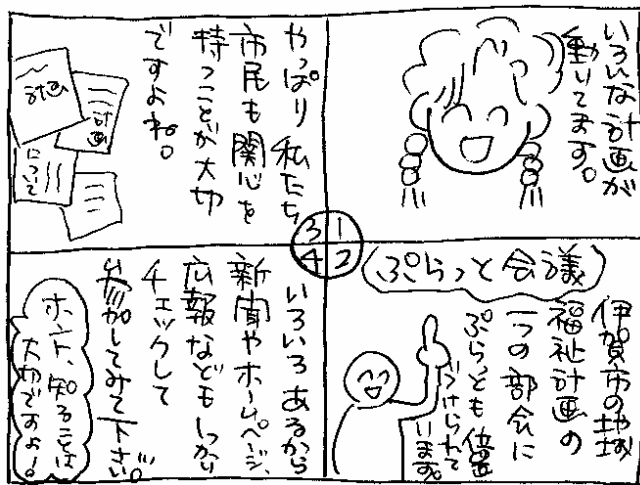 いろんな計画が
動いてます。
1
2
3
4
ぷらっと会議
伊賀市の地域
福祉計画の
一つの部会に
ぷらっとも位置
づけられて
います。
やっぱり私たち
市民も関心を
持つことが大切
ですよね。
計画
計画
について
いろいろあるから
新聞やホームページ、
広報などもしっかり
チェックして
参加してみて下さい。
ホント、知ることは
大切ですよ!